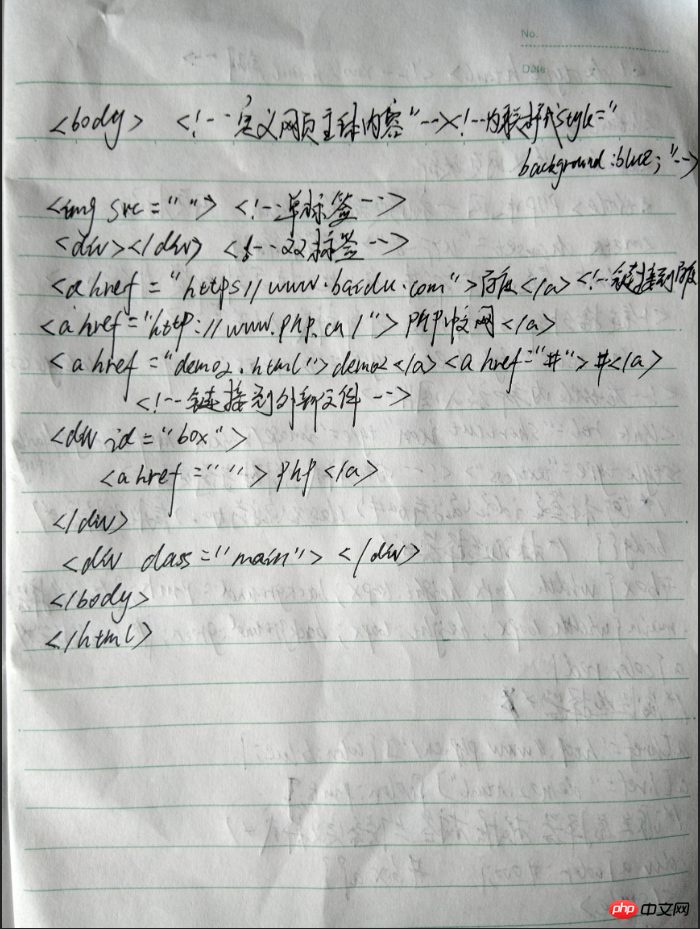 No.
Date
<body> <!--定义网页主体内容"--><!--内联样式style="
background:blue;"-->
<img src=" "> <!--单标签-->
<div></div> <!--双标签-->
<a href="https//www.baidu.com">百度</a> <!--链接到百度
<a href="http://www.php.cn/">PHP中文网</a>
<a href="demo2.html">demo2</a> <a href="#">#</a>
<!--链接到外部文件-->
<div id="box">
<a href=" "> php </a>
</div>
<div class="main"> </div>
</body>
</html>
php 中文网